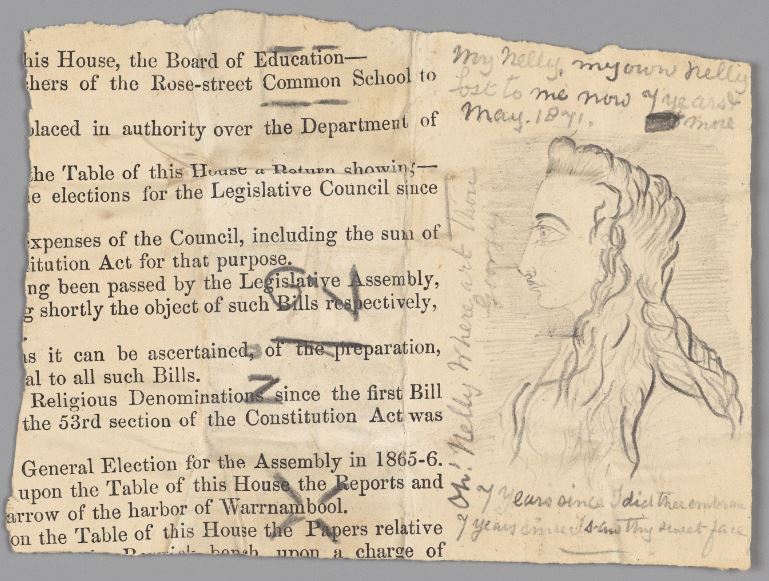 his House, the Board of Education—
hers of the Rose-street Common School to
placed in authority over the Department of
the Table of this House a Return showing—
e elections for the Legislative Council since
expenses of the Council, including the sum of
itution Act for that purpose.
ng been passed by the Legislative Assembly,
g shortly the object of such Bills respectively,
as it can be ascertained, of the preparation,
al to all such Bills.
Religious Denominations since the first Bill
the 53rd section of the Constitution Act was
General Election for the Assembly in 1865-6.
upon the Table of this House the Reports and
arrow of the harbor of Warrnambool.
on the Table of this House the Papers relative
bench upon a charge of
My Nelly, my own Nelly
lost to me now 7 years &
May. 1871. more
Oh! Nelly Where art Thou
7 Years since I did thee embrace
7 years since I saw thy sweet face